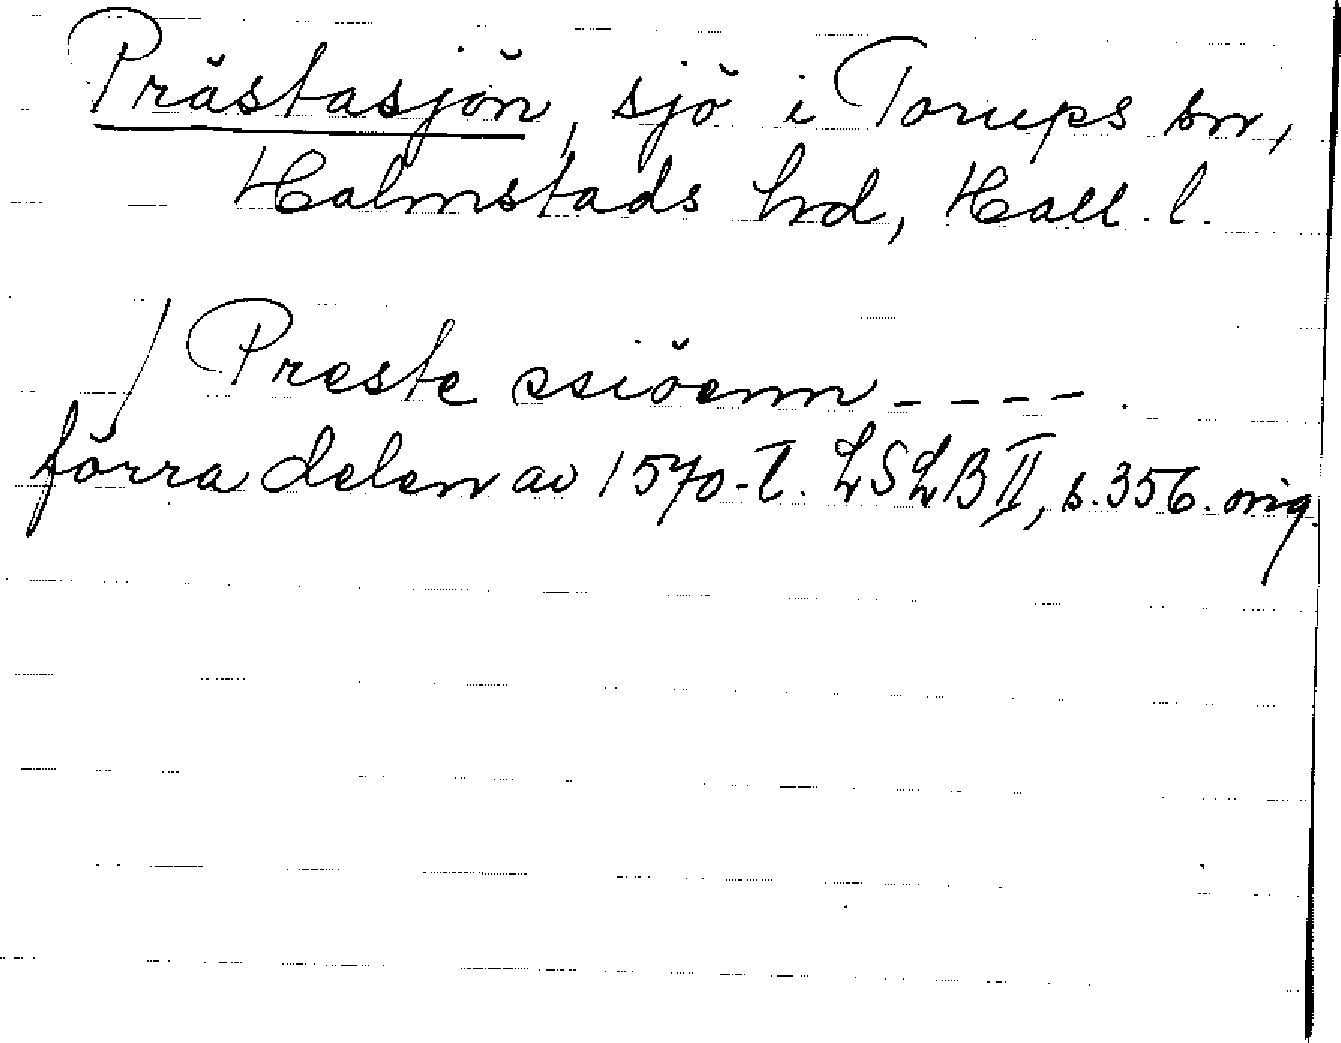 Prästasjön, sjö i Torups sn,
Halmstads hrd, Hall. l.
/ Preste ssiöenn - - - - .
förra delen av 1570-t. LSLB II, s. 356. orig.